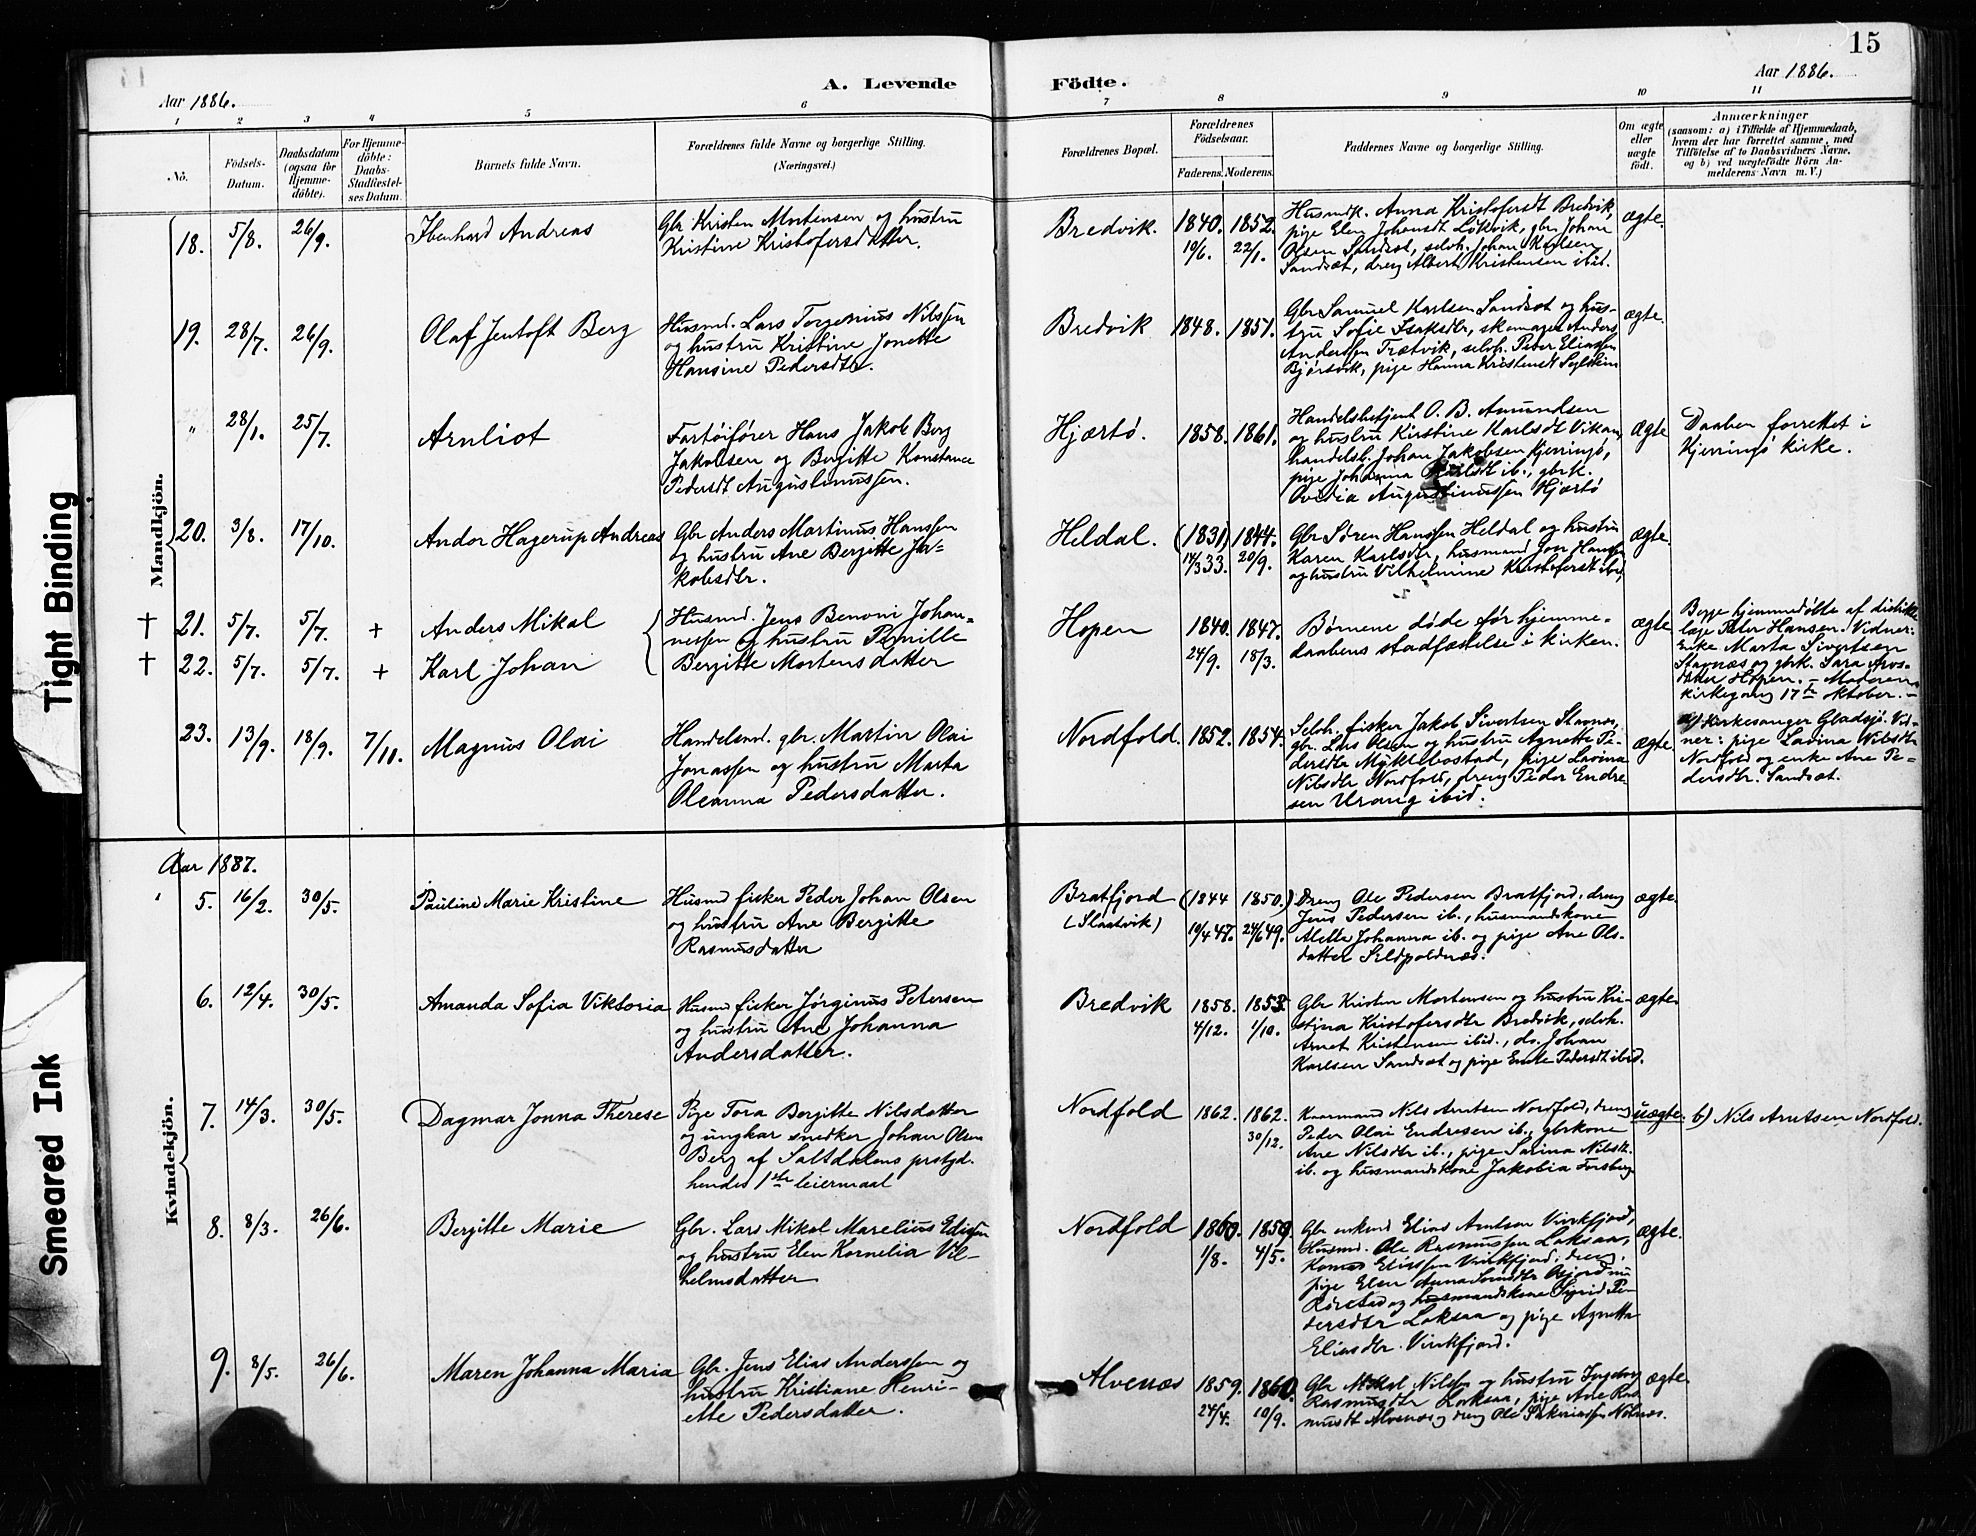 15
A. Levende Födte.
Aar 1886.
Aar 1886.
1 2 3 4 5 6 7 8 9 10 11
No.
Födsels-
Datum.
Daabsdatum
(ogsaa for
Hjemme-
döbte).
For Hjemme-
döbte:
Daabs-
Stadfæstel-
ses Datum.
Barnets fulde Navn.
Forældrenes fulde Navne og borgerlige Stilling.
(Næringsvei.)
Forældrenes Bopæl.
Forældrenes
Födselsaar.
Faderens. Moderens.
Faddernes Navne og borgerlige Stilling.
Om ægte
eller
uægte
födt.
Anmærkninger
(saasom: a) i Tilfælde af Hjemmedaab,
hvem der har forrettet samme, med
Tilföielse af to Daabsvidners Navne,
og b) ved uægtefödte Börn An-
melderens Navn m. V.)
Mandkjön.
18. 5/8. 26/9.
Ibenhard Andreas
Gbr Kristen Mortensen og hustru
Kristine Kristofersdatter.
Bredvik.
1840. 1852.
19/6. 22/1.
Husmdk. Anna Kristofersdt Bredvik,
pige Elen Johansdt Løkvik, gbr. Johan
Olsen Sandsæt, selvh. Johan Karlsen
Sandsæt, dreng Albert Kristensen ibid.
ægte.
19. 28/7. 26/9.
Olaf Jentoft Berg
Husmd. Lars Torgenius Nilssen
og hustru Kristine Jonette
Hansine Pedersdtr.
Bredvik
1848. 1851.
Gbr Samuel Karlsen Sandsæt og hus-
tru Sofie Isaksdtr, skomager Anders
Anderssen Trætvik, selvh. Peder Eliassen
Bjørsvik, pige Hanna Kristensdt
ægte.
" 28/1. 25/7.
Arnliot
Fartøifører Hans Jakob Berg
Jakobsen og Bergitte Konstance
Pedersdt Augustinussen.
Hjærtø.
1858. 1861.
Handelsbetjent O. B. Amundsen
og hustru Kirstine Karlsdt Vikan,
handelsb. Johan Jakobsen Kjerringø,
pige Johanna ib., gbrk.
Ovedia Augustinussen Hjærtø
ægte
Daaben forrettet i
Kjerringø kirke.
20. 3/8. 17/10.
Andor Hagerup Andreas
Gbr Anders Martinus Hanssen
og hustru Ane Bergitte Ja-
kobsdtr.
Heldal.
(1831) 1844.
14/3 33. 20/9.
Gbr Søren Hanssen Heldal og hustru
Karen Karlsdtr, husmand Jon Hanssen
og hustru Vilhelmine Kristofersdt ibid,
ægte.
† 21. 5/7. 5/7. +
Anders Mikal
† 22. 5/7. 5/7. +
Karl Johan
Husmd. Jens Benoni Johan-
nessen og hustru Pernille
Bergitte Mortensdatter
Hopen
1840. 1847.
24/9. 18/3.
Børnene døde før hjemme-
daabens stadfæstelse i kirken.
ægte
Begge hjemmedøbte af distrikts-
læge Peter Hansen. Vidner:
Enke Marta Sivertsen
Stavnæs og gbrk. Sara Aros-
datter Hopen. – Moderens
kirkegang 17de oktober. –
23. 13/9. 18/9. 7/10.
Magnus Olai
Handelsmd. gbr. Martin Olai
Jonassen og hustru Marta
Oleanna Pedersdatter.
Nordfold.
1852. 1854.
Selvh. fisker Jakob Sivertsen Stavnæs,
gbr. Lars Olsen og hustru Agnette Pe-
dersdtr Myklebostad, pige Lavina
Nilsdtr Nordfold, dreng Peder Endre-
sen Urang ibid.
ægte.
a) Kirkesanger Gladsjø. Vid-
ner: pige Lavina Nilsdtr
Nordfold og enke Ane Pe-
dersdtr. Sandsæt.
Aar 1887.
Kvindekjön.
5. 16/2. 30/5.
Pauline Marie Kristine
Husmd fisker Peder Johan Olsen
og hustru Ane Bergitte
Rasmusdatter
Bratfjord
(Slaatvik)
(1844 1850.)
19/4 47. 24/6 49.
Dreng Ole Pedersen Bratfjord, dreng
Jens Pedersen ib., husmandskone
Alette Johanna ib. og pige Ane Ols-
datter
ægte.
6. 12/4. 30/5.
Amanda Sofia Viktoria
Husmd fisker Jørginus Petersen
og hustru Ane Johanna
Andersdatter.
Bredvik
1858. 1853.
4/12. 1/10.
Gbr Kristen Mortensen og hustru Kri-
stina Kristofersdtr Bredvik, selvh.
Arnet Kristensen ibid., do. Johan
Karlsen Sandsæt og pige Pedersdt ibid.
ægte.
7. 14/3. 30/5.
Dagmar Jonna Therese
Pige Tora Bergitte Nilsdatter
og ungkar snedker Johan Olsen
Berg af Saltdalens prstgjd.
hendes 1ste leiermaal
Nordfold
1862. 1862.
30/12.
Kaarmand Nils Arntsen Nordfold, dreng
Peder Olai Endresen ib., gbrkone
Ane Nilsdtr ib., pige Lavina Nilsdt.
ib. og husmandskone Jakobia Forsberg
uægte.
b) Nils Arntsen Nordfold.
8. 8/3. 26/6.
Bergitte Marie
Gbr. Lars Mikal Marelius
og hustru Elen Kornelia Vil-
helmsdatter
Nordfold
1860. 1859.
1/8. 4/5.
Gbr enkemd Elias Arntsen Vinkfjord,
Husmd. Ole Rasmussen Laksaa,
Eliassen Vinkfjord, dreng,
pige Elen Anna
Rørstad og husmandskone Sigrid Pe-
dersdtr Laksaa og pige Agnetta
Eliasdtr. Vinkfjord.
ægte.
9. 8/5. 26/6.
Maren Johanna Maria
Gbr. Jens Elias Anderssen og
hustru Kristiane Henri-
ette Pedersdatter.
Alvenæs
1859. 1860.
24/4. 10/9.
Gbr Mikal Nilsen og hustru Ingeborg
Rasmusdtr Laksaa, pige Ane Ras-
musdt Alvenæs og dreng Ole
ægte.
Tight Binding
Smeared Ink